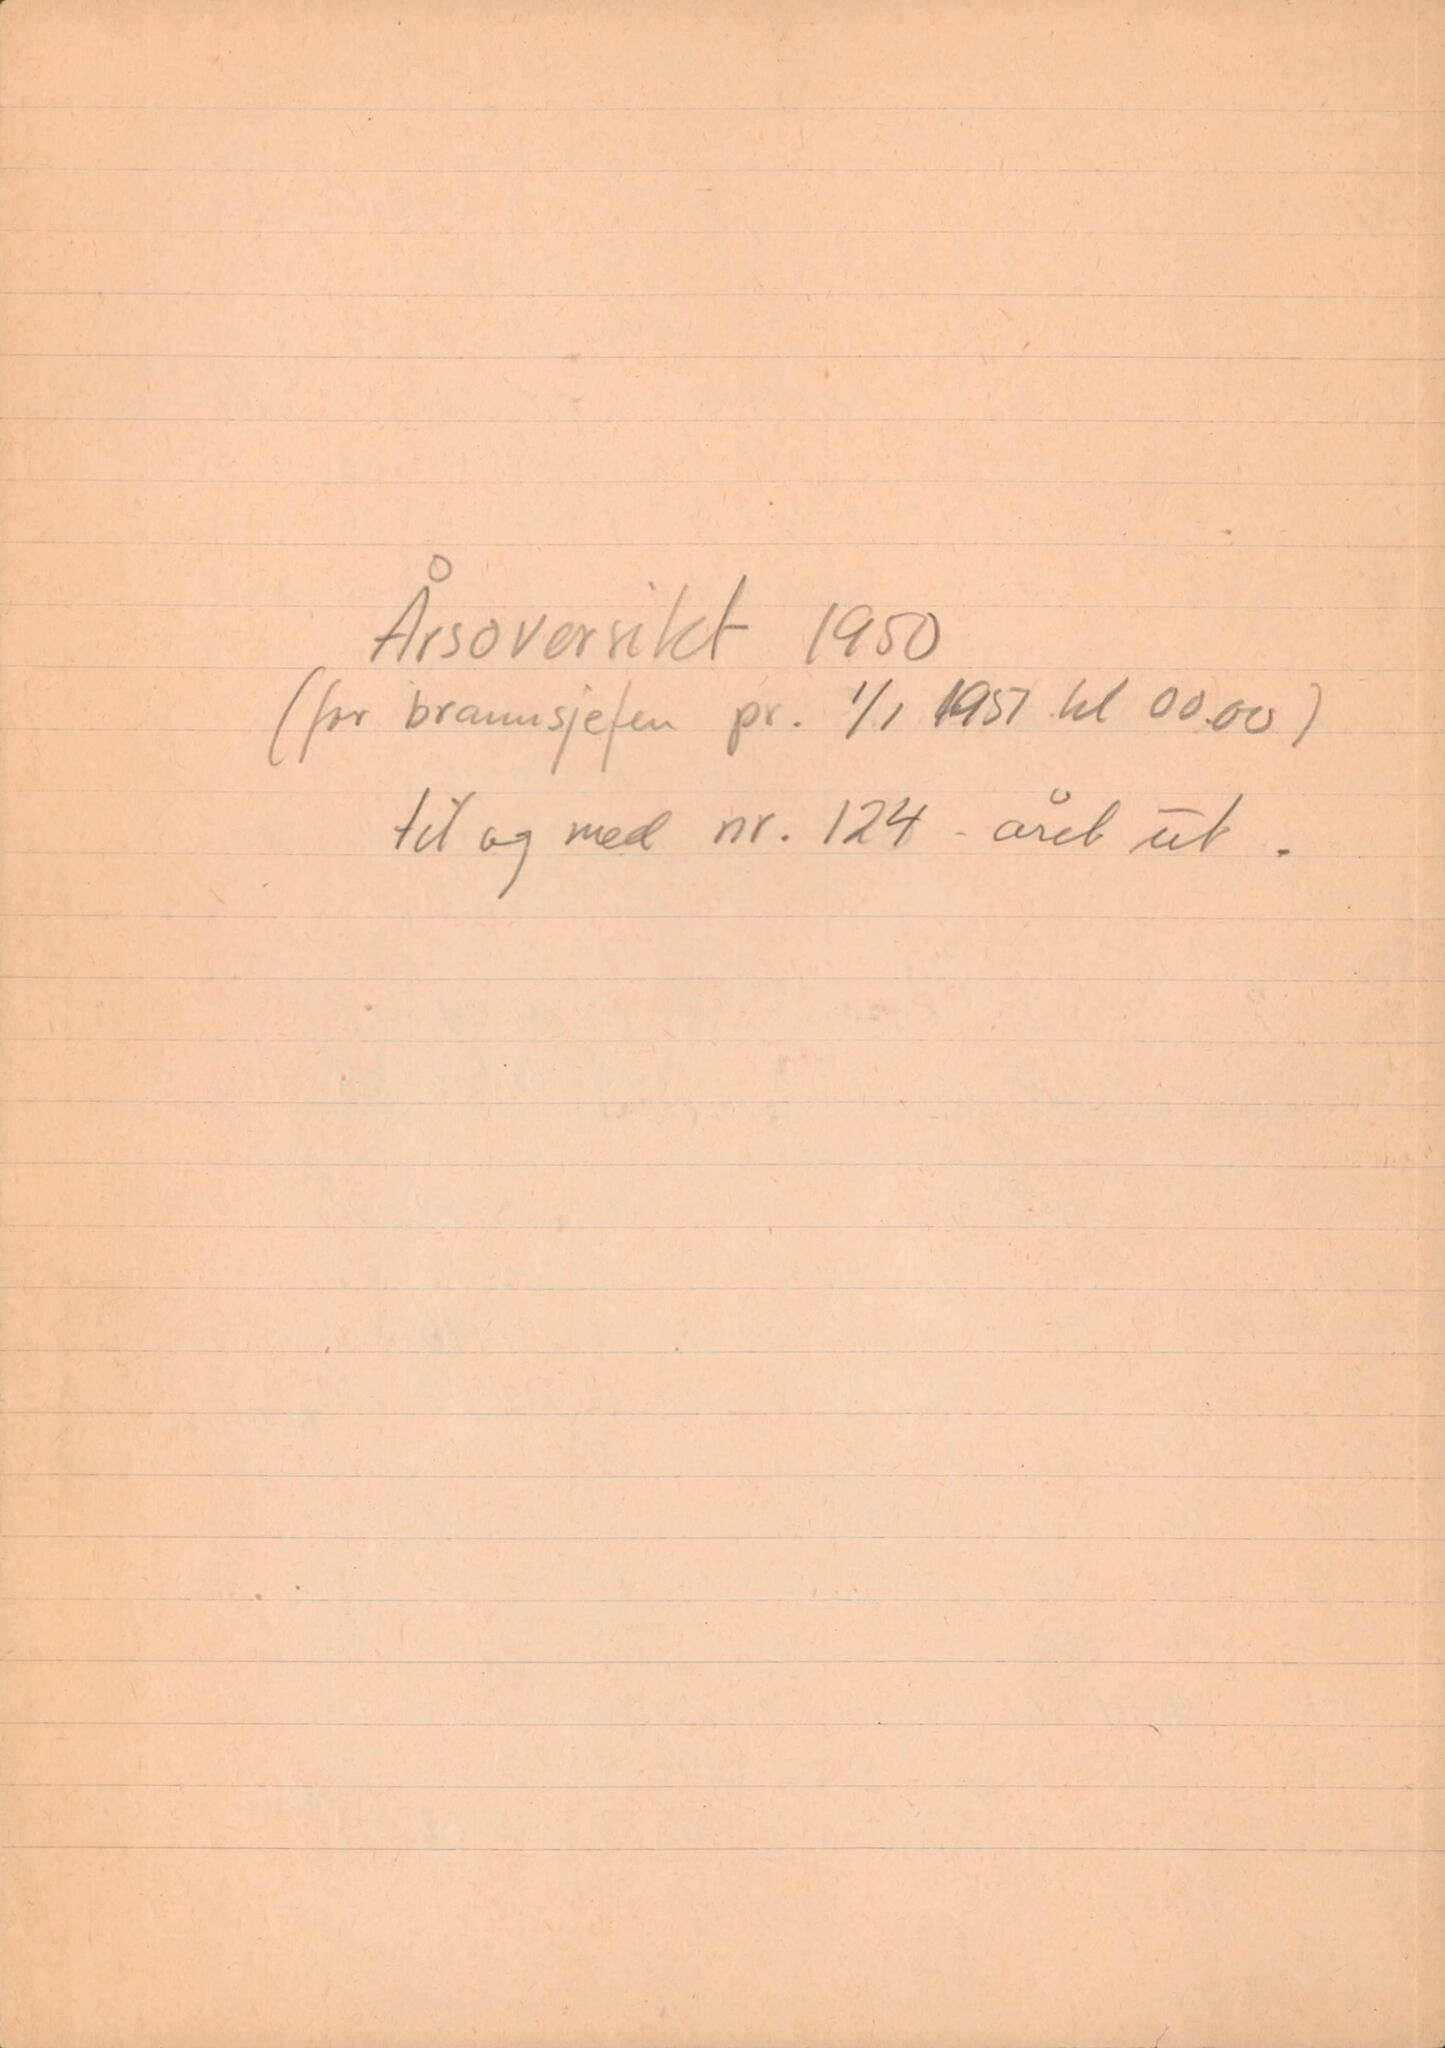 Årsoversikt 1950
(for brannsjefen pr. 1/1 1951 kl 00.00)
til og med nr. 124 - året ut.